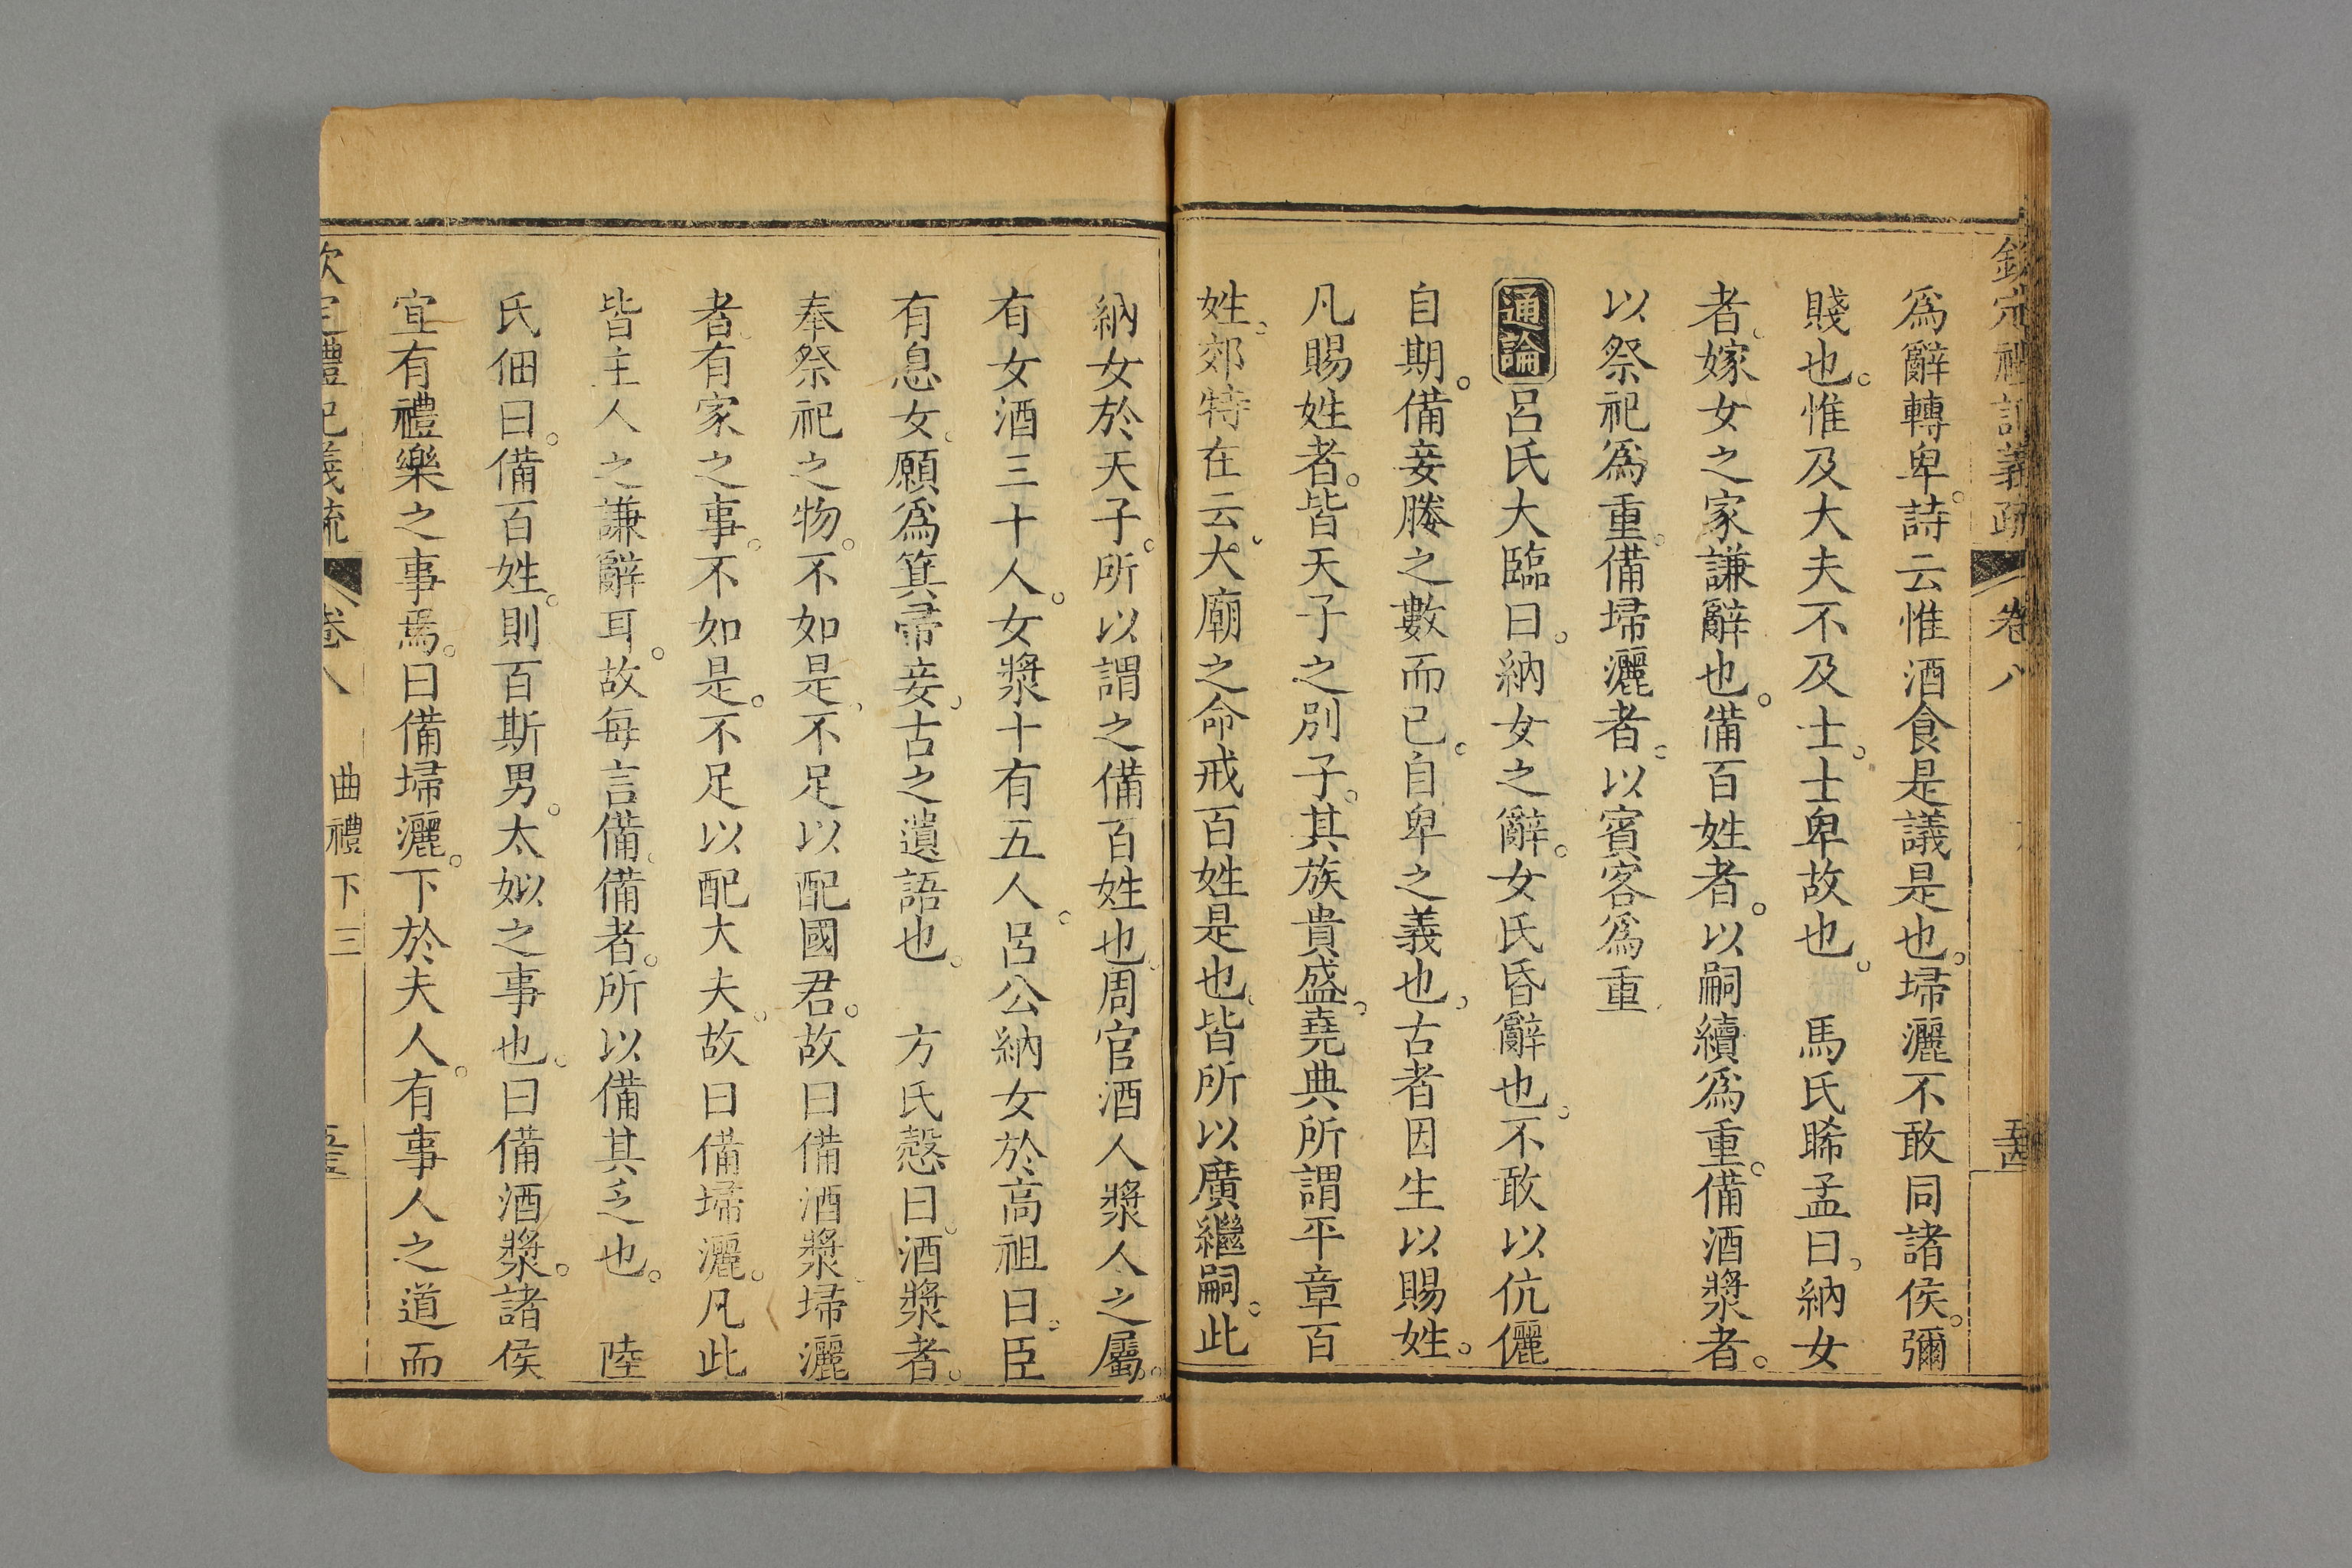 欽定禮記義疏 卷八
爲辭轉卑。詩云惟酒食是議是也。埽灑不敢同諸侯。彌
賤也。惟及大夫不及士。士卑故也。 馬氏睎孟曰。納女
者。嫁女之家謙辭也。備百姓者。以嗣續爲重。備酒漿者。
以祭祀爲重。備埽灑者。以賓客爲重
通論呂氏大臨曰。納女之辭。女氏昏辭也。不敢以伉儷
自期。備妾媵之數而已。自卑之義也。古者因生以賜姓。
凡賜姓者。皆天子之別子。其族貴盛。堯典所謂平章百
姓。郊特在云。大廟之命戒百姓是也。皆所以廣繼嗣。此
納女於天子。所以謂之備百姓也。周官酒人漿人之屬。
有女酒三十人。女漿十有五人。呂公納女於高祖曰。臣
有息女。願爲箕帚妾。古之遺語也。 方氏慤曰。酒漿者。
奉祭祀之物。不如是。不足以配國君。故曰備酒漿。埽灑
者。有家之事。不如是。不足以配大夫。故曰備埽灑。凡此
皆主人之謙辭耳。故每言備。備者。所以備其乏也。 陸
氏佃曰。備百姓。則百斯男。太姒之事也。曰備酒漿。諸侯
宜有禮樂之事焉。曰備埽灑。下於夫人。有事人之道而
欽定禮記義疏 卷八 曲禮下三